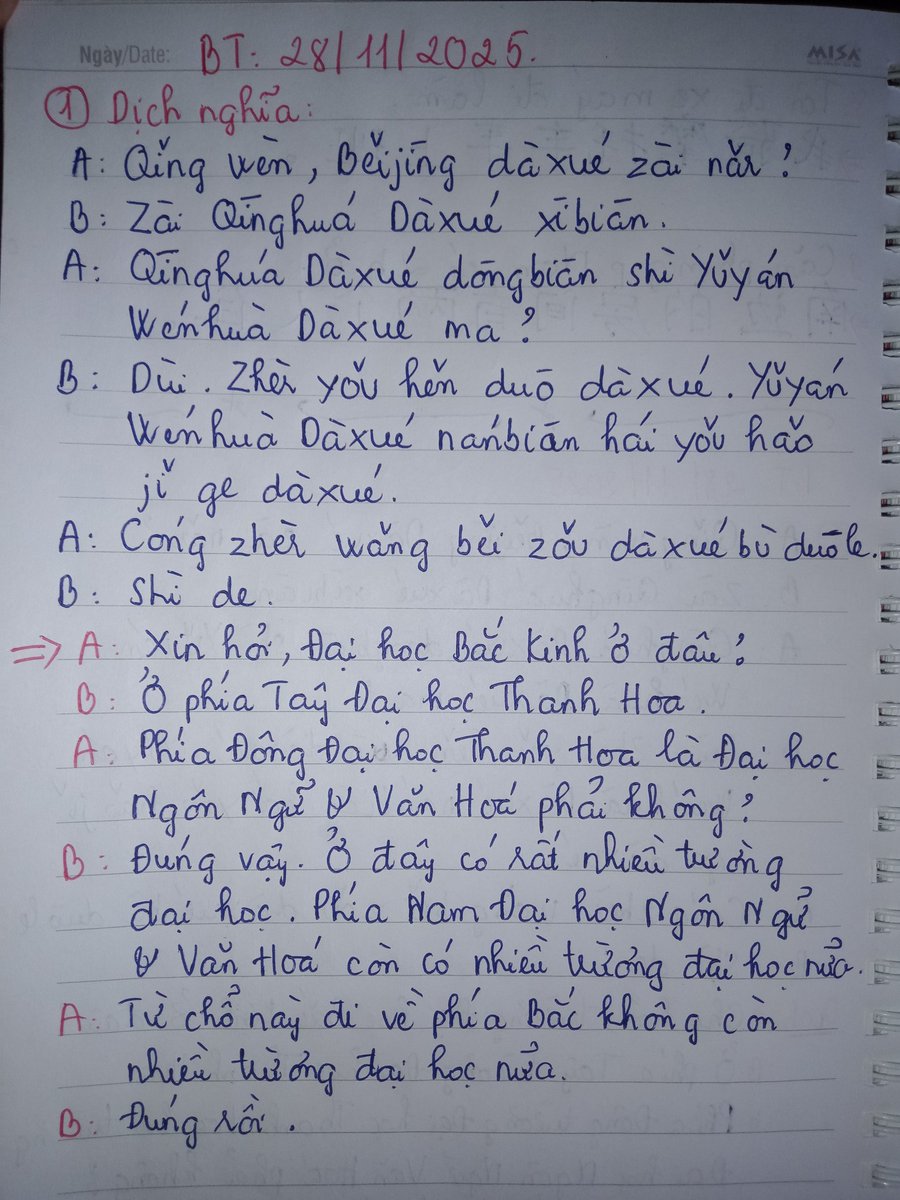 Ngày/Date: BT: 28/11/2025. MISA
① Dịch nghĩa:
A: Qǐng wèn, Běijīng dàxué zài nǎr?
B: Zài Qīnghuá Dàxué xībiān.
A: Qīnghuá Dàxué dōngbiān shì Yǔyán
Wénhuà Dàxué ma?
B: Duì. Zhèr yǒu hěn duō dàxué. Yǔyán
Wénhuà Dàxué nánbiān hái yǒu hǎo
jǐ ge dàxué.
A: Cóng zhèr wǎng běi zǒu dàxué bù duōle.
B: Shì de.
⇒ A: Xin hỏi, Đại học Bắc Kinh ở đâu?
B: Ở phía Tây Đại học Thanh Hoa.
A: Phía Đông Đại học Thanh Hoa là Đại học
Ngôn Ngữ & Văn Hoá phải không?
B: Đúng vậy. Ở đây có rất nhiều trường
đại học. Phía Nam Đại học Ngôn Ngữ
& Văn Hoá còn có nhiều trường đại học nữa.
A: Từ chỗ này đi về phía Bắc không còn
nhiều trường đại học nữa.
B: Đúng rồi.